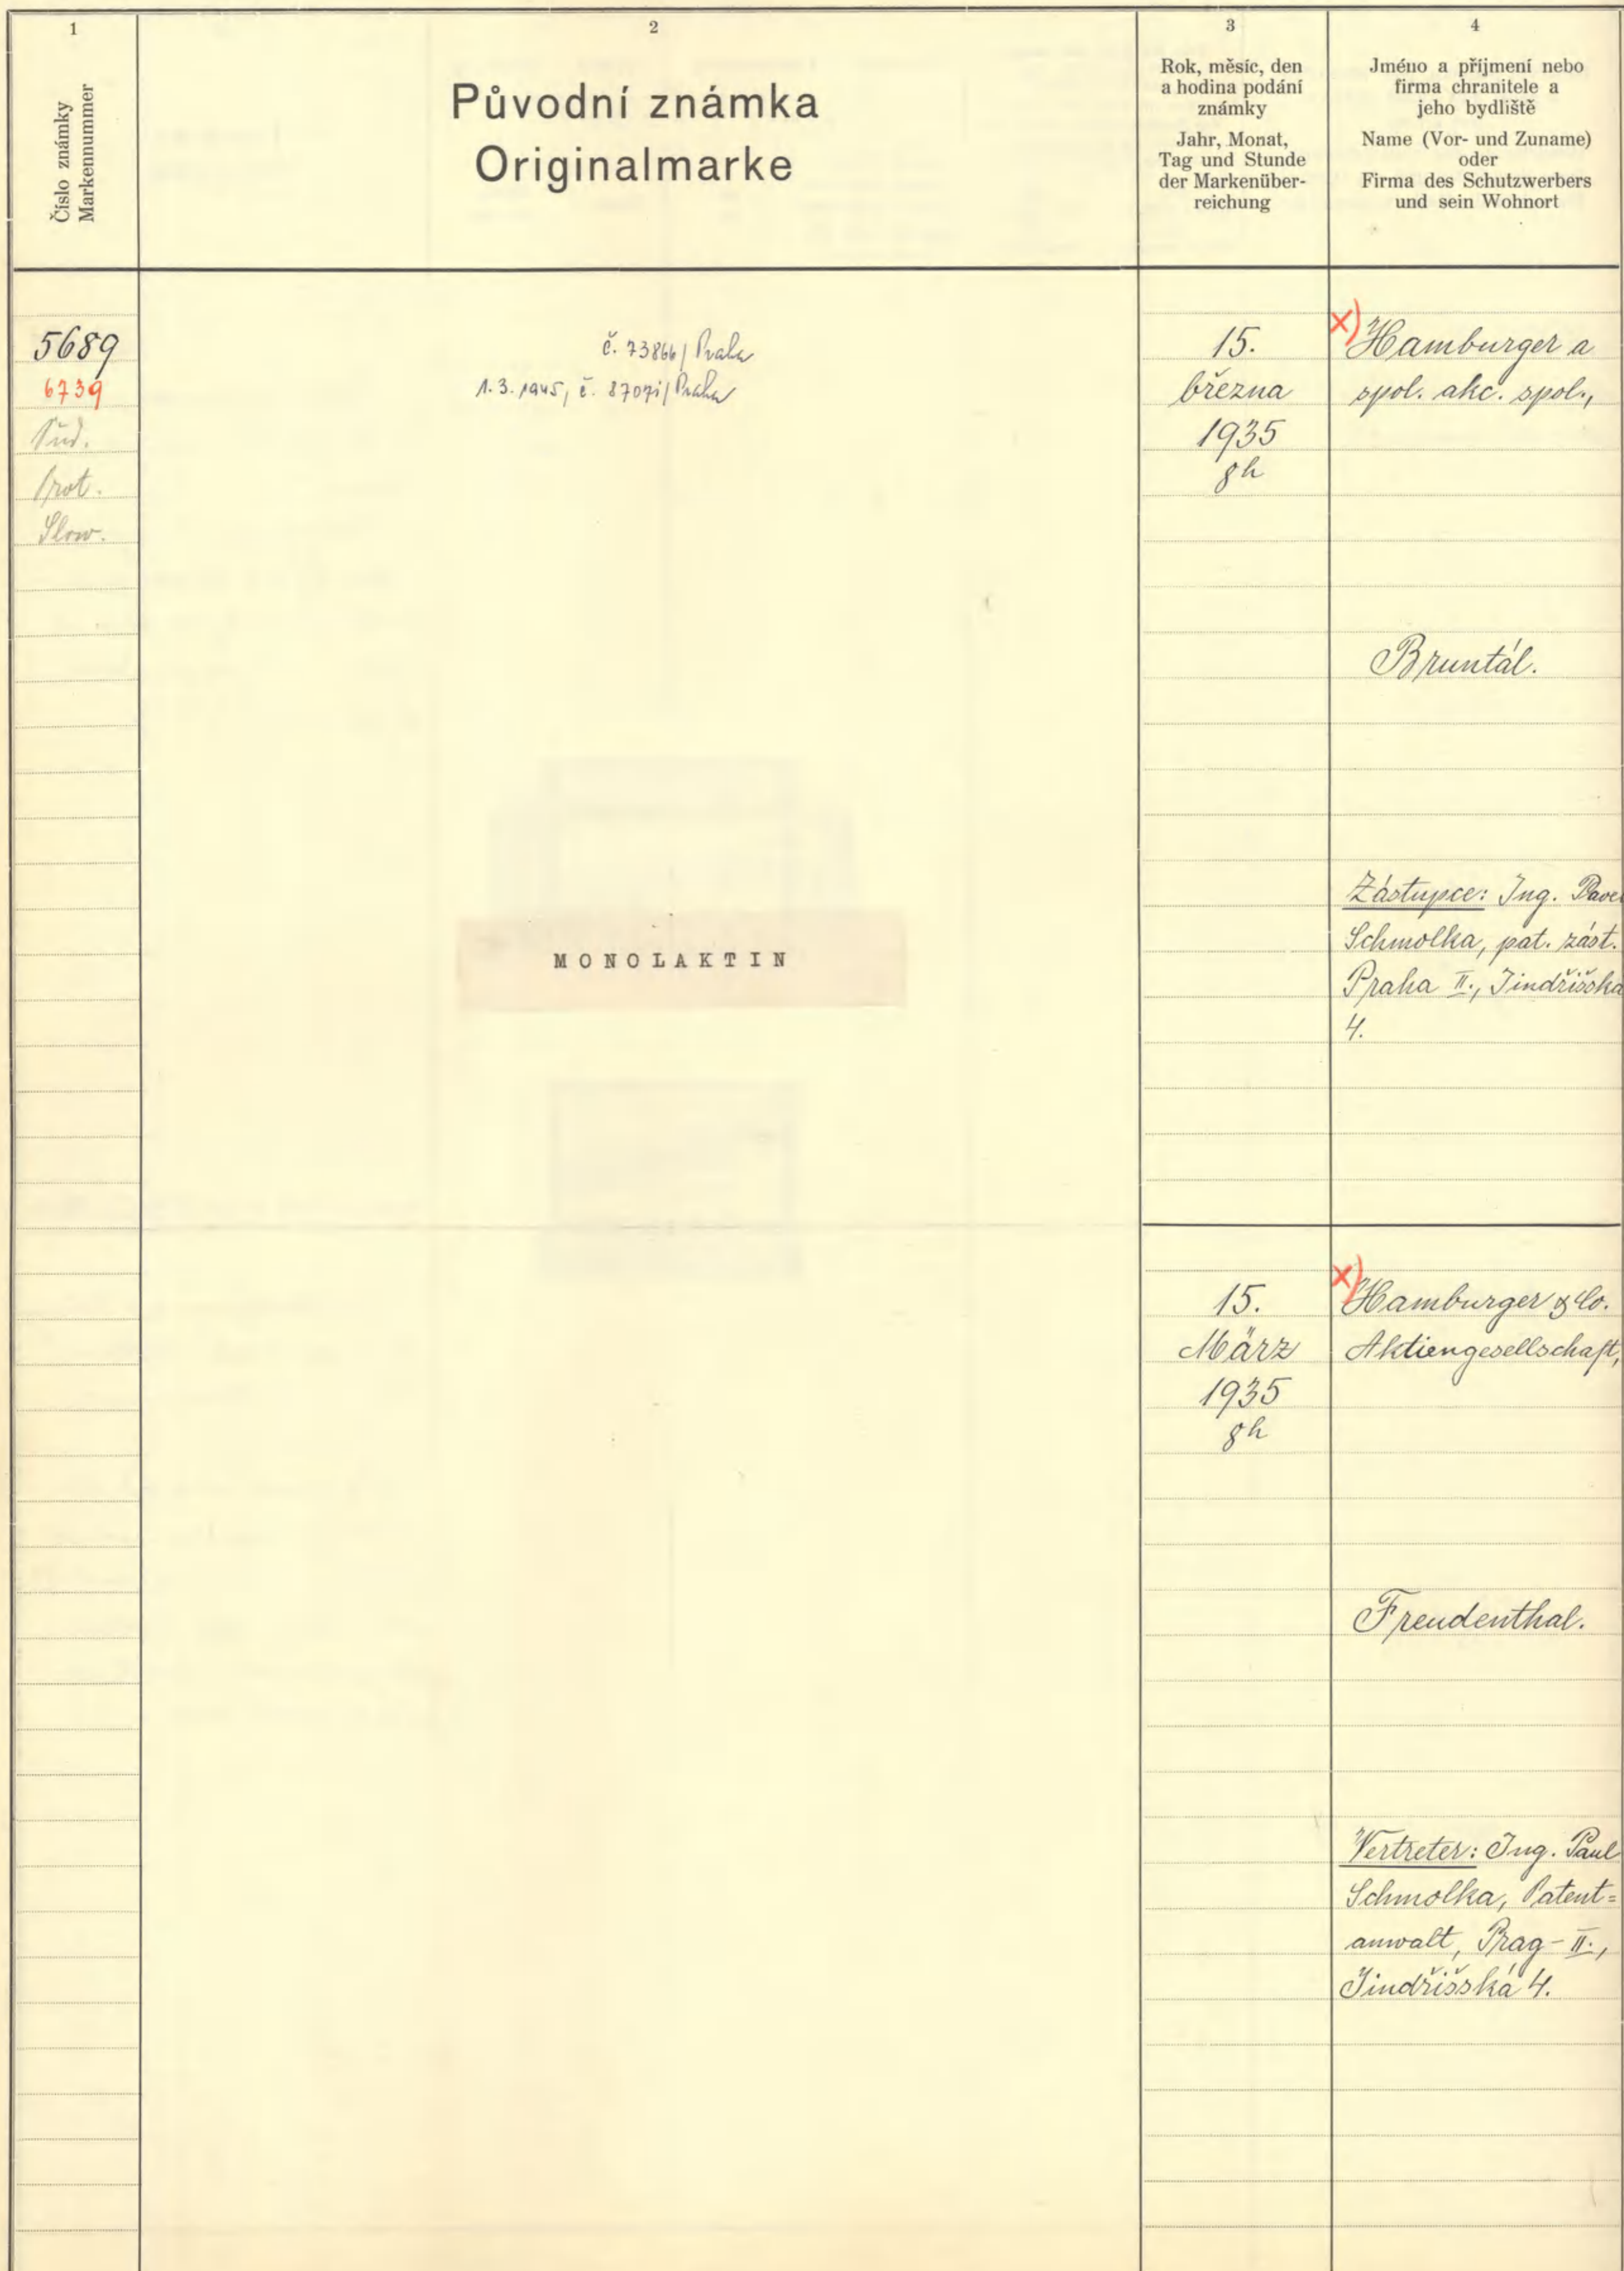 1
Číslo známky
Markennummer
2
Původní známka
Originalmarke
3
Rok, měsíc, den
a hodina podání
známky
Jahr, Monat,
Tag und Stunde
der Markenüber-
reichung
4
Jméno a příjmení nebo
firma chranitele a
jeho bydliště
Name (Vor- und Zuname)
oder
Firma des Schutzwerbers
und sein Wohnort
5689
6739
Süd.
Prot.
Slow.
č. 73866/Praha
1.3.1945, č. /Praha
MONOLAKTIN
15.
března
1935
8h
x) Hamburger a
spol. akc. spol.,
Bruntál.
Zástupce: Ing. Pavel
Schmolka, pat. zást.
Praha II., Jindřišská
4.
15.
März
1935
8h
x) Hamburger & Co.
Aktiengesellschaft,
Freudenthal.
Vertreter: Ing. Paul
Schmolka, Patent=
anwalt, Prag-II.,
Jindřišská 4.